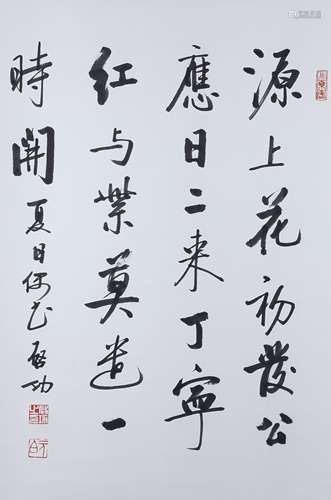 源上花初發公
應日二来丁寧
红与紫莫遣一
時開 夏日偶书 啓功